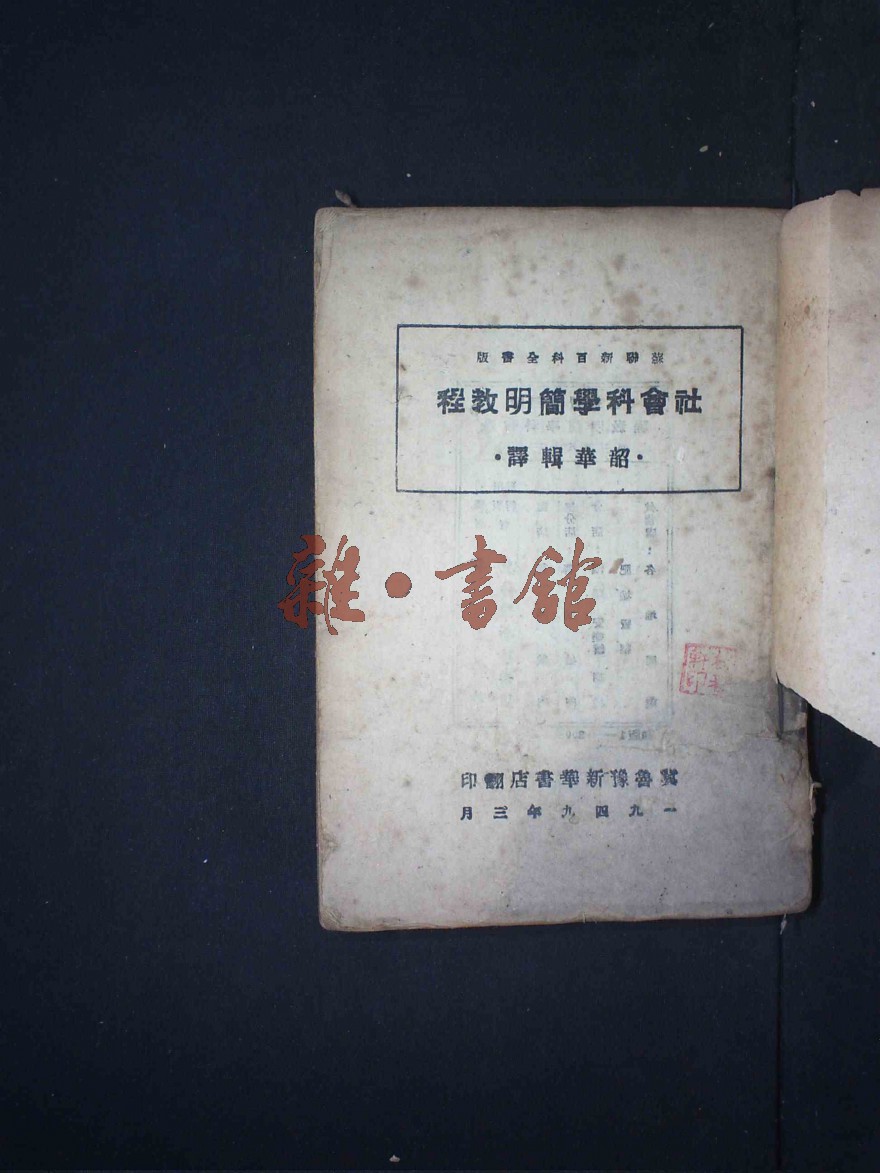 蘇聯新百科全書版
社會科學簡明教程
·韶華輯譯·
雜·書館
冀魯豫新華書店翻印
一九四九年三月